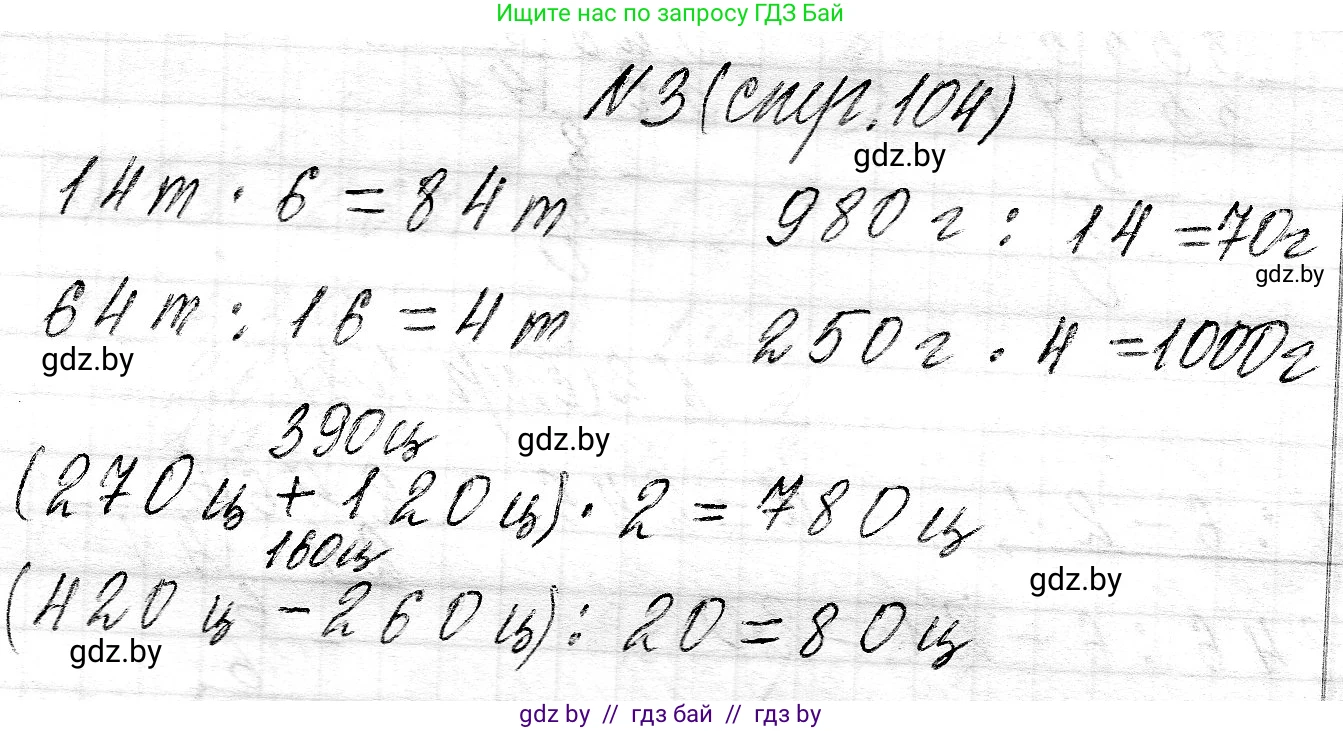 Ищите нас по запросу ГДЗ Бай
N 3 (стр. 104)
gdz.by
14 т · 6 = 84 т
980 г : 14 = 70 г
gdz.by
64 т : 16 = 4 т
250 г · 4 = 1000 г
gdz.by
390 ц
gdz.by
(270 ц + 120 ц) · 2 = 780 ц
160 ц
gdz.by
(420 ц - 260 ц) : 20 = 80 ц
gdz.by
gdz by // гдз бай // gdz by